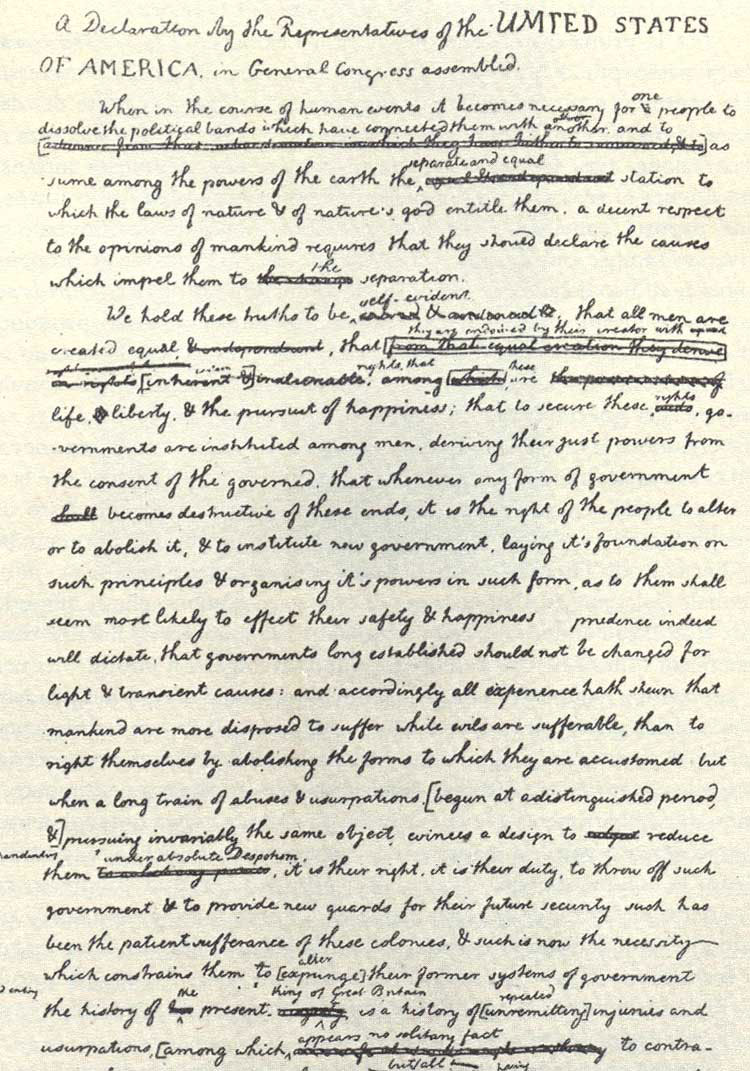 A Declaration by the Representatives of the UNITED STATES
OF AMERICA, in General Congress assembled.
When in the course of human events it becomes necessary for one people to
dissolve the political bands which have connected them with another, and to
as
-sume among the powers of the earth the separate and equal station to
which the laws of nature & of nature's god entitle them, a decent respect
to the opinions of mankind requires that they should declare the causes
which impel them to the separation.
We hold these truths to be self-evident, that all men are
created equal & independent, that they are endowed by their creator with
from that equal creation they derive
[inherent &] inalienable rights, that among which these are
life, liberty, & the pursuit of happiness; that to secure these rights, go-
-vernments are instituted among men, deriving their just powers from
the consent of the governed, that whenever any form of government
shall becomes destructive of these ends, it is the right of the people to alter
or to abolish it, & to institute new government, laying it's foundation on
such principles & organising it's powers in such form, as to them shall
seem most likely to effect their safety & happiness prudence indeed
will dictate, that governments long established should not be changed for
light & transient causes: and accordingly all experience hath shewn that
mankind are more disposed to suffer while evils are sufferable, than to
right themselves by abolishing the forms to which they are accustomed but
when a long train of abuses & usurpations, [begun at a distinguished period,
&] pursuing invariably the same object, evinces a design to reduce
them under absolute Despotism, it is their right, it is their duty, to throw off such
government & to provide new guards for their future security such has
been the patient sufferance of these colonies, & such is now the necessity
which constrains them to alter [expunge] their former systems of government
the history of the present King of Great Britain is a history of repeated [unremitting] injuries and
usurpations, [among which appears no solitary fact to contra-
but all
having